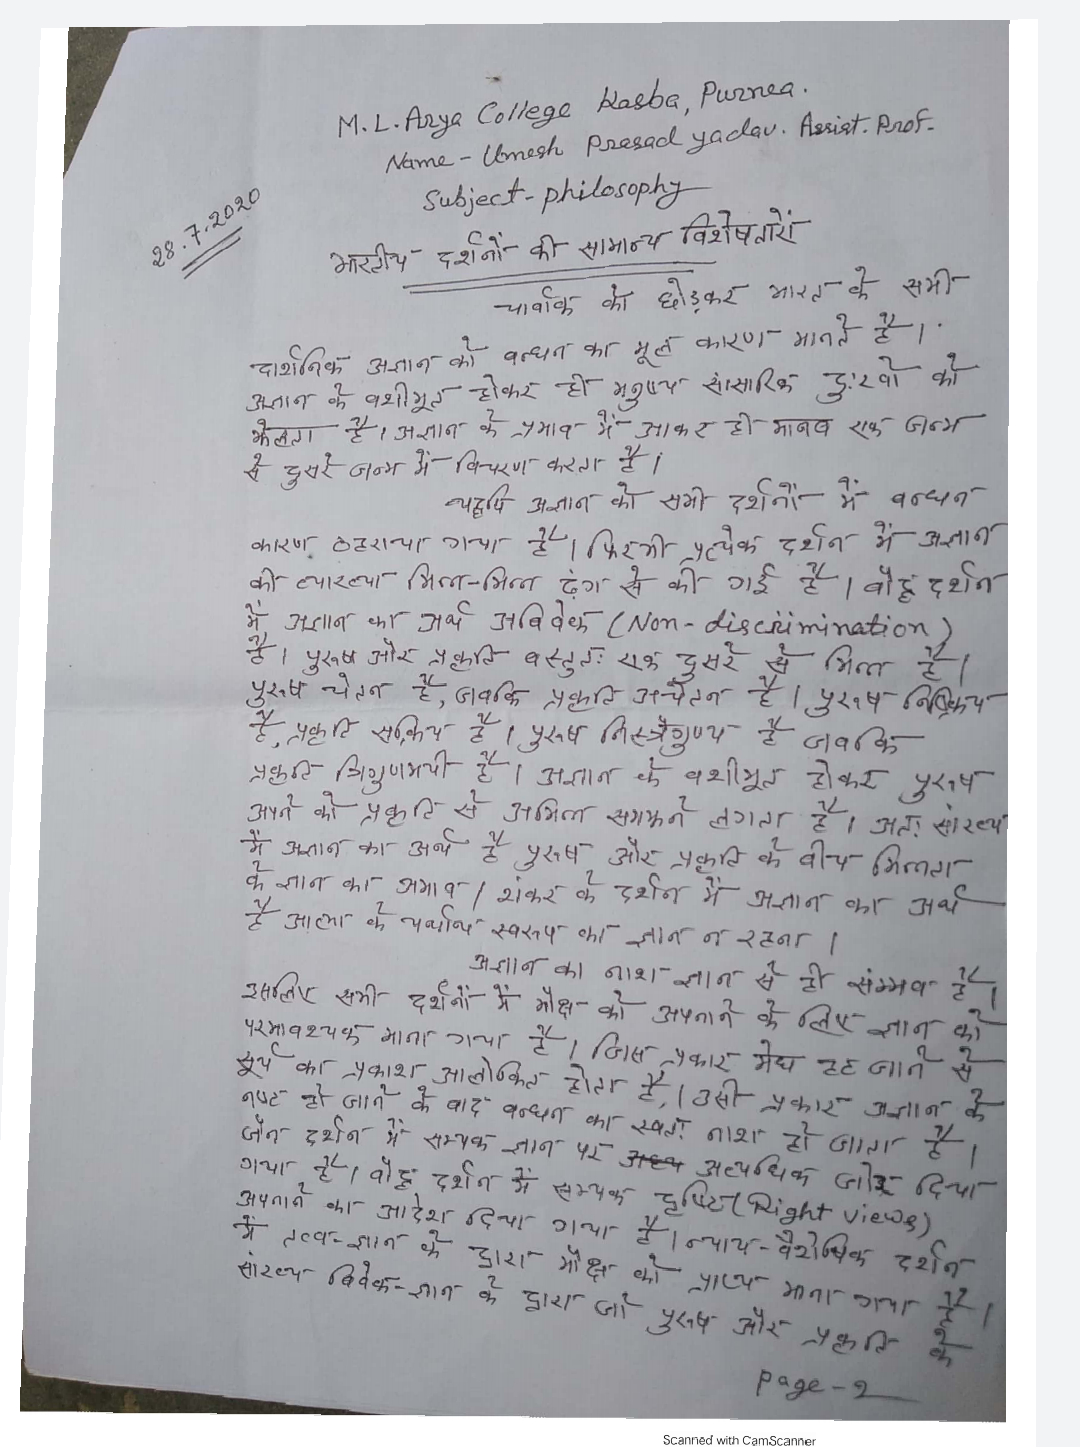 M.L. Arya College Kasba, Purnea.
Name - Umesh Prasad yadav. Assist. Prof.
Subject - philosophy
28.7.2020
भारतीय दर्शनों की सामान्य विशेषताऐं
चार्वाक को छोड़कर भारत के सभी
दार्शनिक अज्ञान को बन्धन का मूल कारण मानते हैं।
अज्ञान के वशीभूत होकर ही मनुष्य सांसारिक दुःखों को
झेलता है। अज्ञान के प्रभाव में आकर ही मानव एक जन्म
से दुसरे जन्म में विचरण करता है।
यद्यपि अज्ञान को सभी दर्शनों में बन्धन
कारण ठहराया गया है। फिरभी प्रत्येक दर्शन में अज्ञान
की व्याख्या भिन्न-भिन्न ढ़ंग से की गई है। बौद्ध दर्शन
में अज्ञान का अर्थ अविवेक (Non-discrimination)
है। पुरूष और प्रकृति वस्तुतः एक दुसरे से भिन्न है।
पुरूष चेतन है, जबकि प्रकृति अचेतन है। पुरूष निष्क्रिय
है, प्रकृति सक्रिय है। पुरूष निस्त्रैगुण्य है जबकि
प्रकृति त्रिगुणमयी है। अज्ञान के वशीभूत होकर पुरूष
अपने को प्रकृति से अभिन्न समझने लगता है। अतः सांख्य
में अज्ञान का अर्थ है पुरूष और प्रकृति के बीच भिन्नता
के ज्ञान का अभाव। शंकर के दर्शन में अज्ञान का अर्थ
है आत्मा के यर्थाथ स्वरूप का ज्ञान न रहना।
अज्ञान का नाश ज्ञान से ही संम्भव है।
इसलिए सभी दर्शनों में मोक्ष को अपनाने के लिए ज्ञान को
परमावश्यक माना गया है। जिस प्रकार मेघ हट जाने से
सूर्य का प्रकाश आलोकित होता है,। उसी प्रकार अज्ञान के
नष्ट हो जाने के बाद बन्धन का स्वतः नाश हो जाता है।
जैन दर्शन में सम्यक ज्ञान पर अत्यधिक जोर दिया
गया है। बौद्ध दर्शन में सम्यक दृष्टि (Right views)
अपनाने का आदेश दिया गया है। न्याय-वैशेषिक दर्शन
में तत्व-ज्ञान के द्वारा मोक्ष को प्राप्य माना गया है।
सांख्य विवेक-ज्ञान के द्वारा जो पुरूष और प्रकृति के
Page-2
Scanned with CamScanner